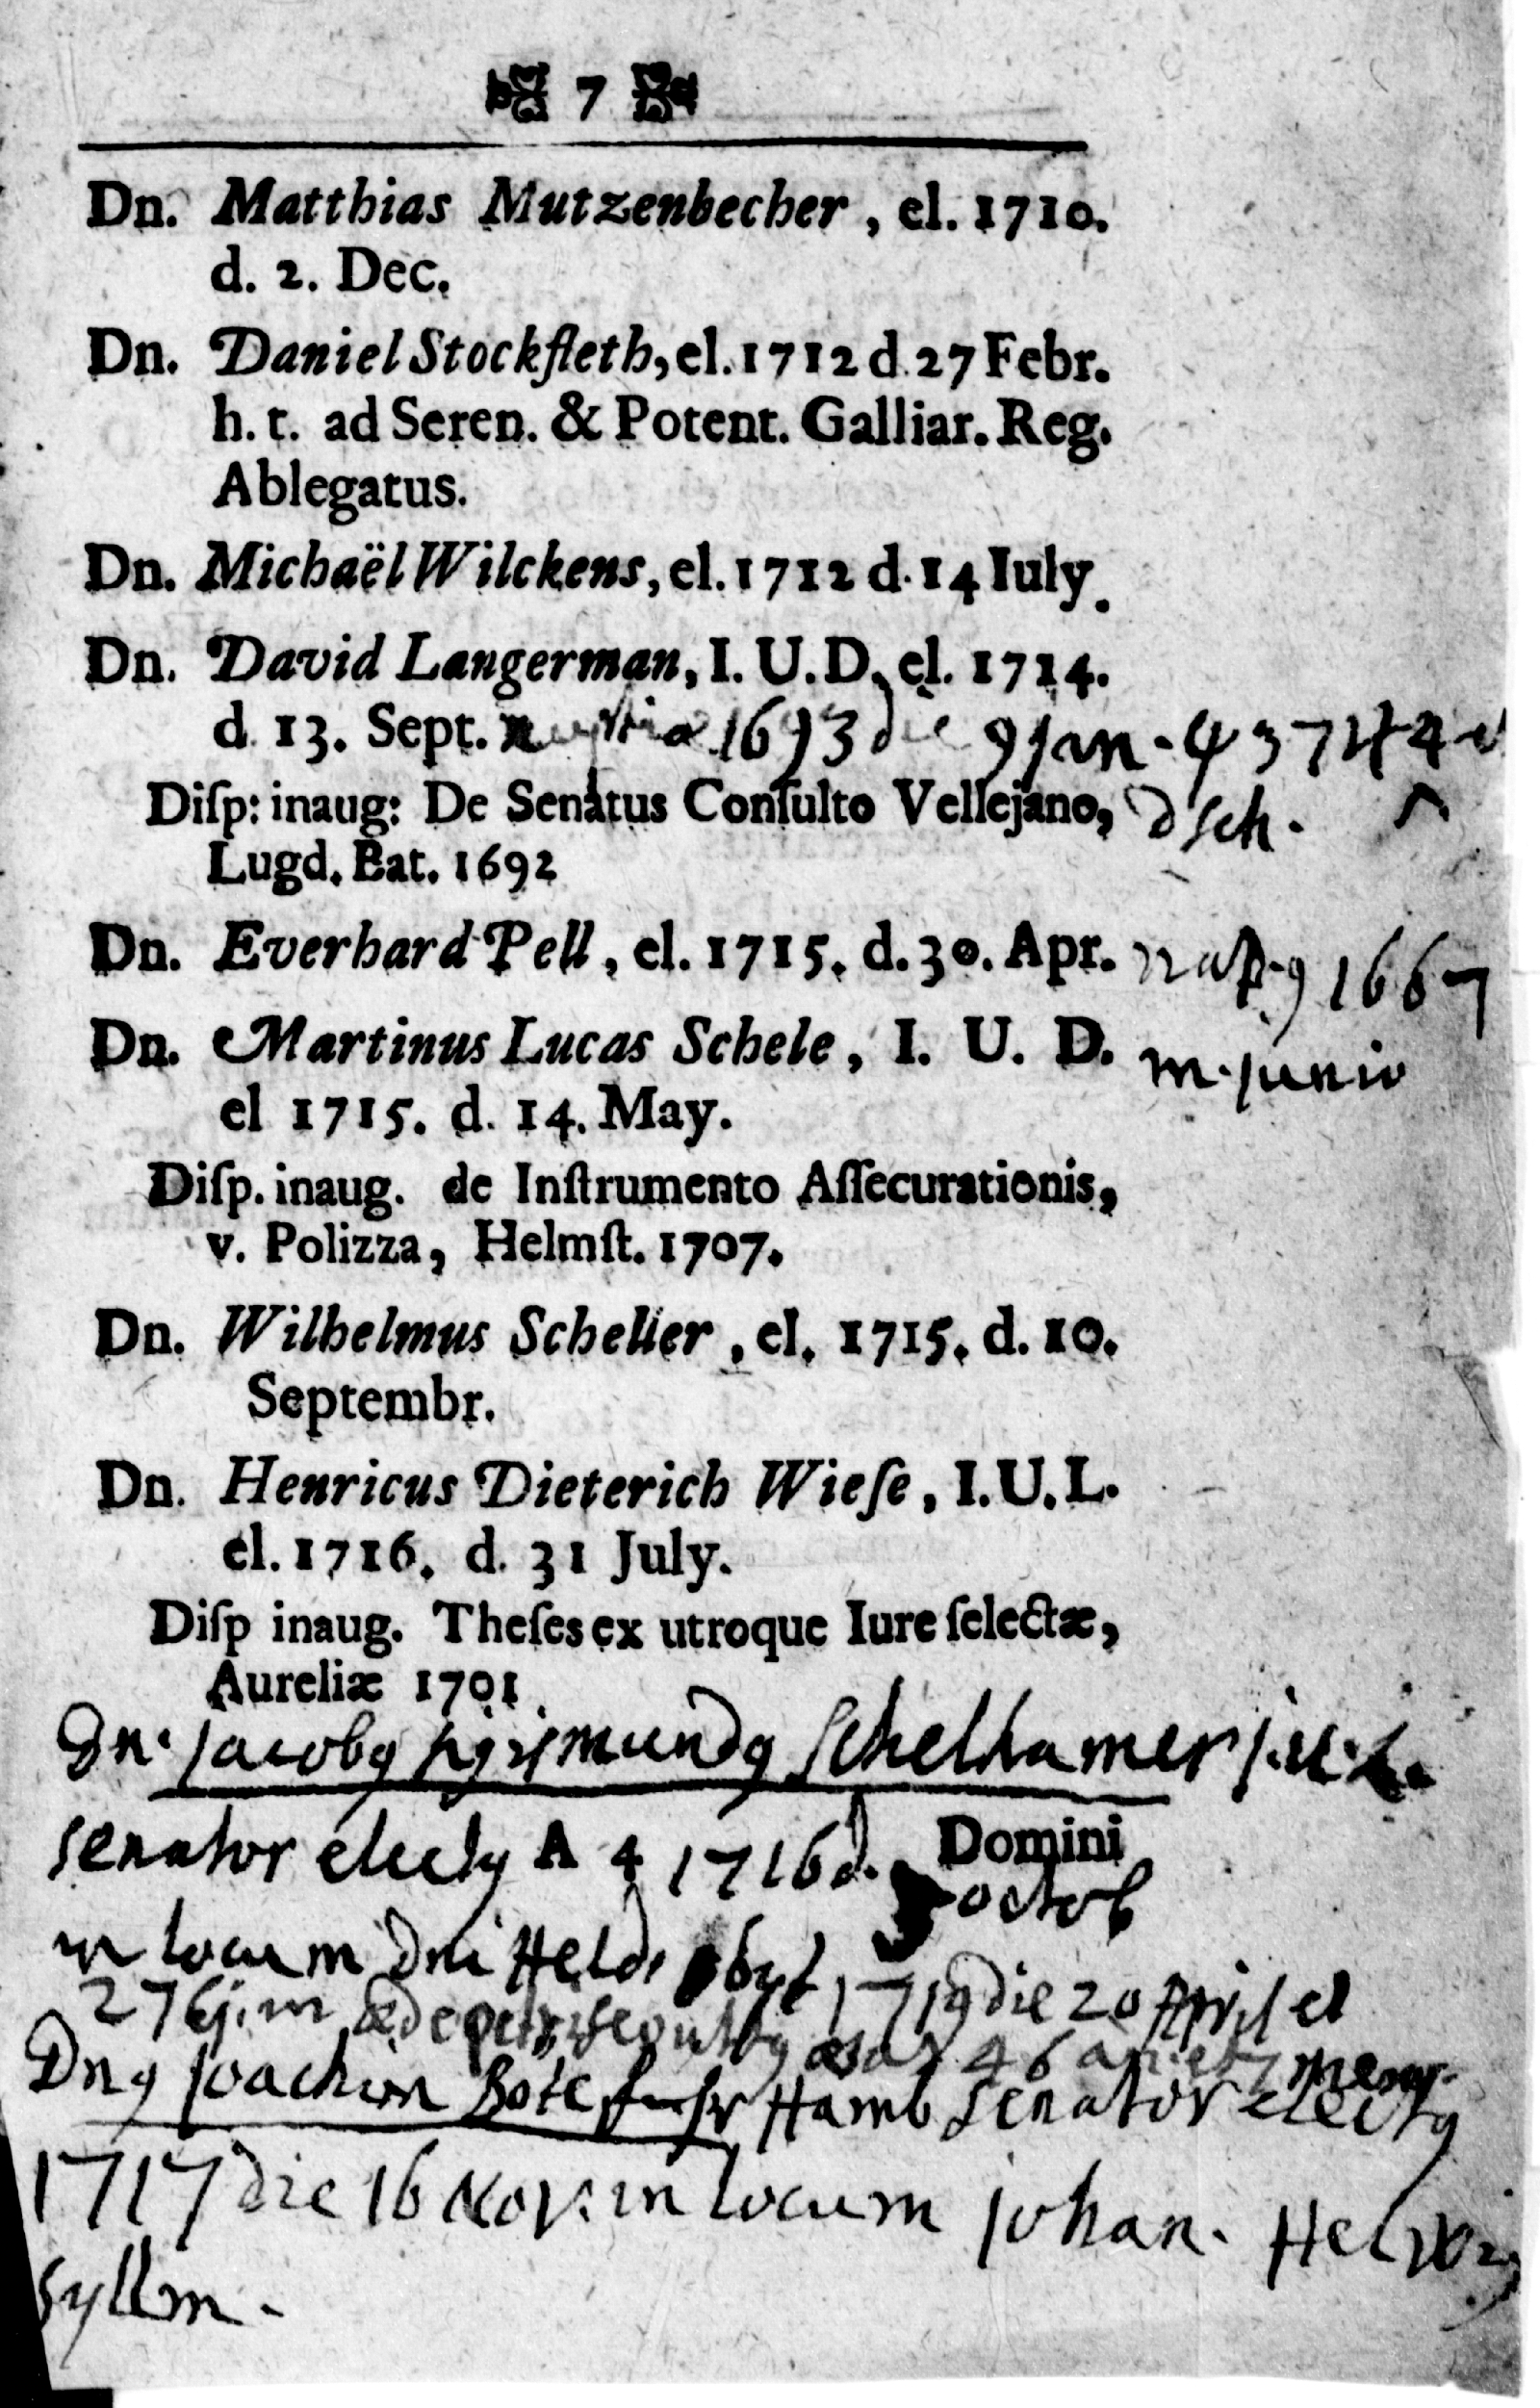 7
Dn. Matthias Mutzenbecher, el. 1710.
d. 2. Dec.
Dn. Daniel Stockfleth, el. 1712 d. 27 Febr.
h. t. ad Seren. & Potent. Galliar. Reg.
Ablegatus.
Dn. Michaël Wilckens, el. 1712 d. 14 Iuly.
Dn. David Langerman, I. U. D. el. 1714.
d. 13. Sept. 1693 die 9 Jan.
Diſp: inaug: De Senatus Conſulto Vellejano,
Lugd. Bat. 1692
Dn. Everhard Pell, el. 1715. d. 30. Apr. 1667
Dn. Martinus Lucas Schele, I. U. D. m. junio
el 1715. d. 14. May.
Diſp. inaug. de Inſtrumento Aſſecurationis,
v. Polizza, Helmſt. 1707.
Dn. Wilhelmus Scheller, el. 1715. d. 10.
Septembr.
Dn. Henricus Dieterich Wieſe, I. U. L.
el. 1716. d. 31 July.
Diſp inaug. Theſes ex utroque Iure ſelectæ,
Aureliæ 1701
Dn. Jacobꝰ Schelhamer
senator electꝰ A 1716 d. Domini
octob
in locum Dni Held. 1719 die 20 April
Dnꝰ Joachim Hamb senator electꝰ
1717 die 16 Nov. in locum Johan.
Syllm.